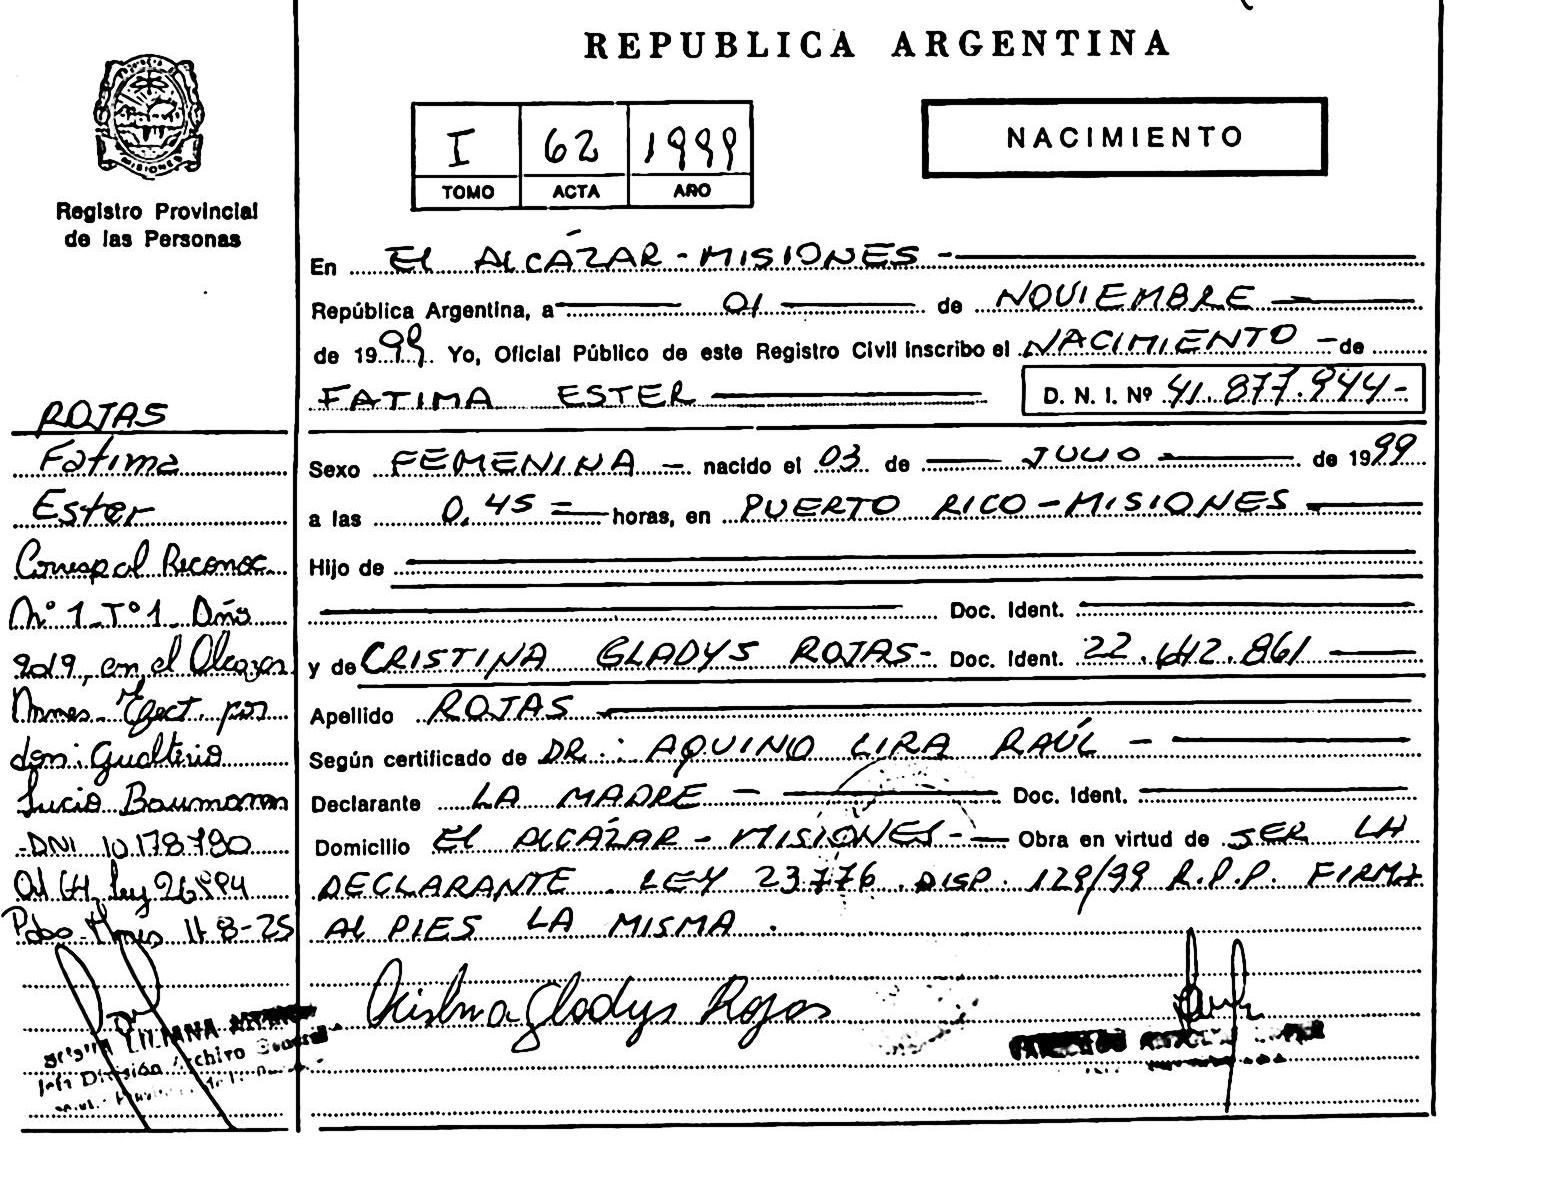 REPUBLICA ARGENTINA
MISIONES
Registro Provincial
de las Personas
I 62 1999
TOMO ACTA AÑO
NACIMIENTO
En El ALCÁZAR - MISIONES -
República Argentina, a 01 de NOVIEMBRE
de 1999. Yo, Oficial Público de este Registro Civil inscribo el NACIMIENTO - de
FATIMA ESTER D. N. I. Nº 41.877.944-
Sexo FEMENINA - nacido el 03 de JULIO de 1999
a las 0,45 = horas, en PUERTO RICO - MISIONES
Hijo de
Doc. Ident.
y de CRISTINA GLADYS ROJAS - Doc. Ident. 22.642.861
Apellido ROJAS
Según certificado de DR.: AQUINO LIRA RAÚL -
Declarante LA MADRE - Doc. Ident.
Domicilio El ALCÁZAR - MISIONES - Obra en virtud de SER LA
DECLARANTE. LEY 23776. DISP. 129/99 R.P.P. FIRMA
Al PIES LA MISMA.
Cristina Gladys Rojas
ROJAS
Fatima
Ester
Corresp al Reconoc.
Nº 1 - Tº 1 - Año
2019, en el Alcazar
Mnes - Efect. por
don: Gualterio
Lucio Baumann
- DNI 10.178.780
Ley 26994
Pdas. Mnes 11-8-25
LILIANA
División Archivo General